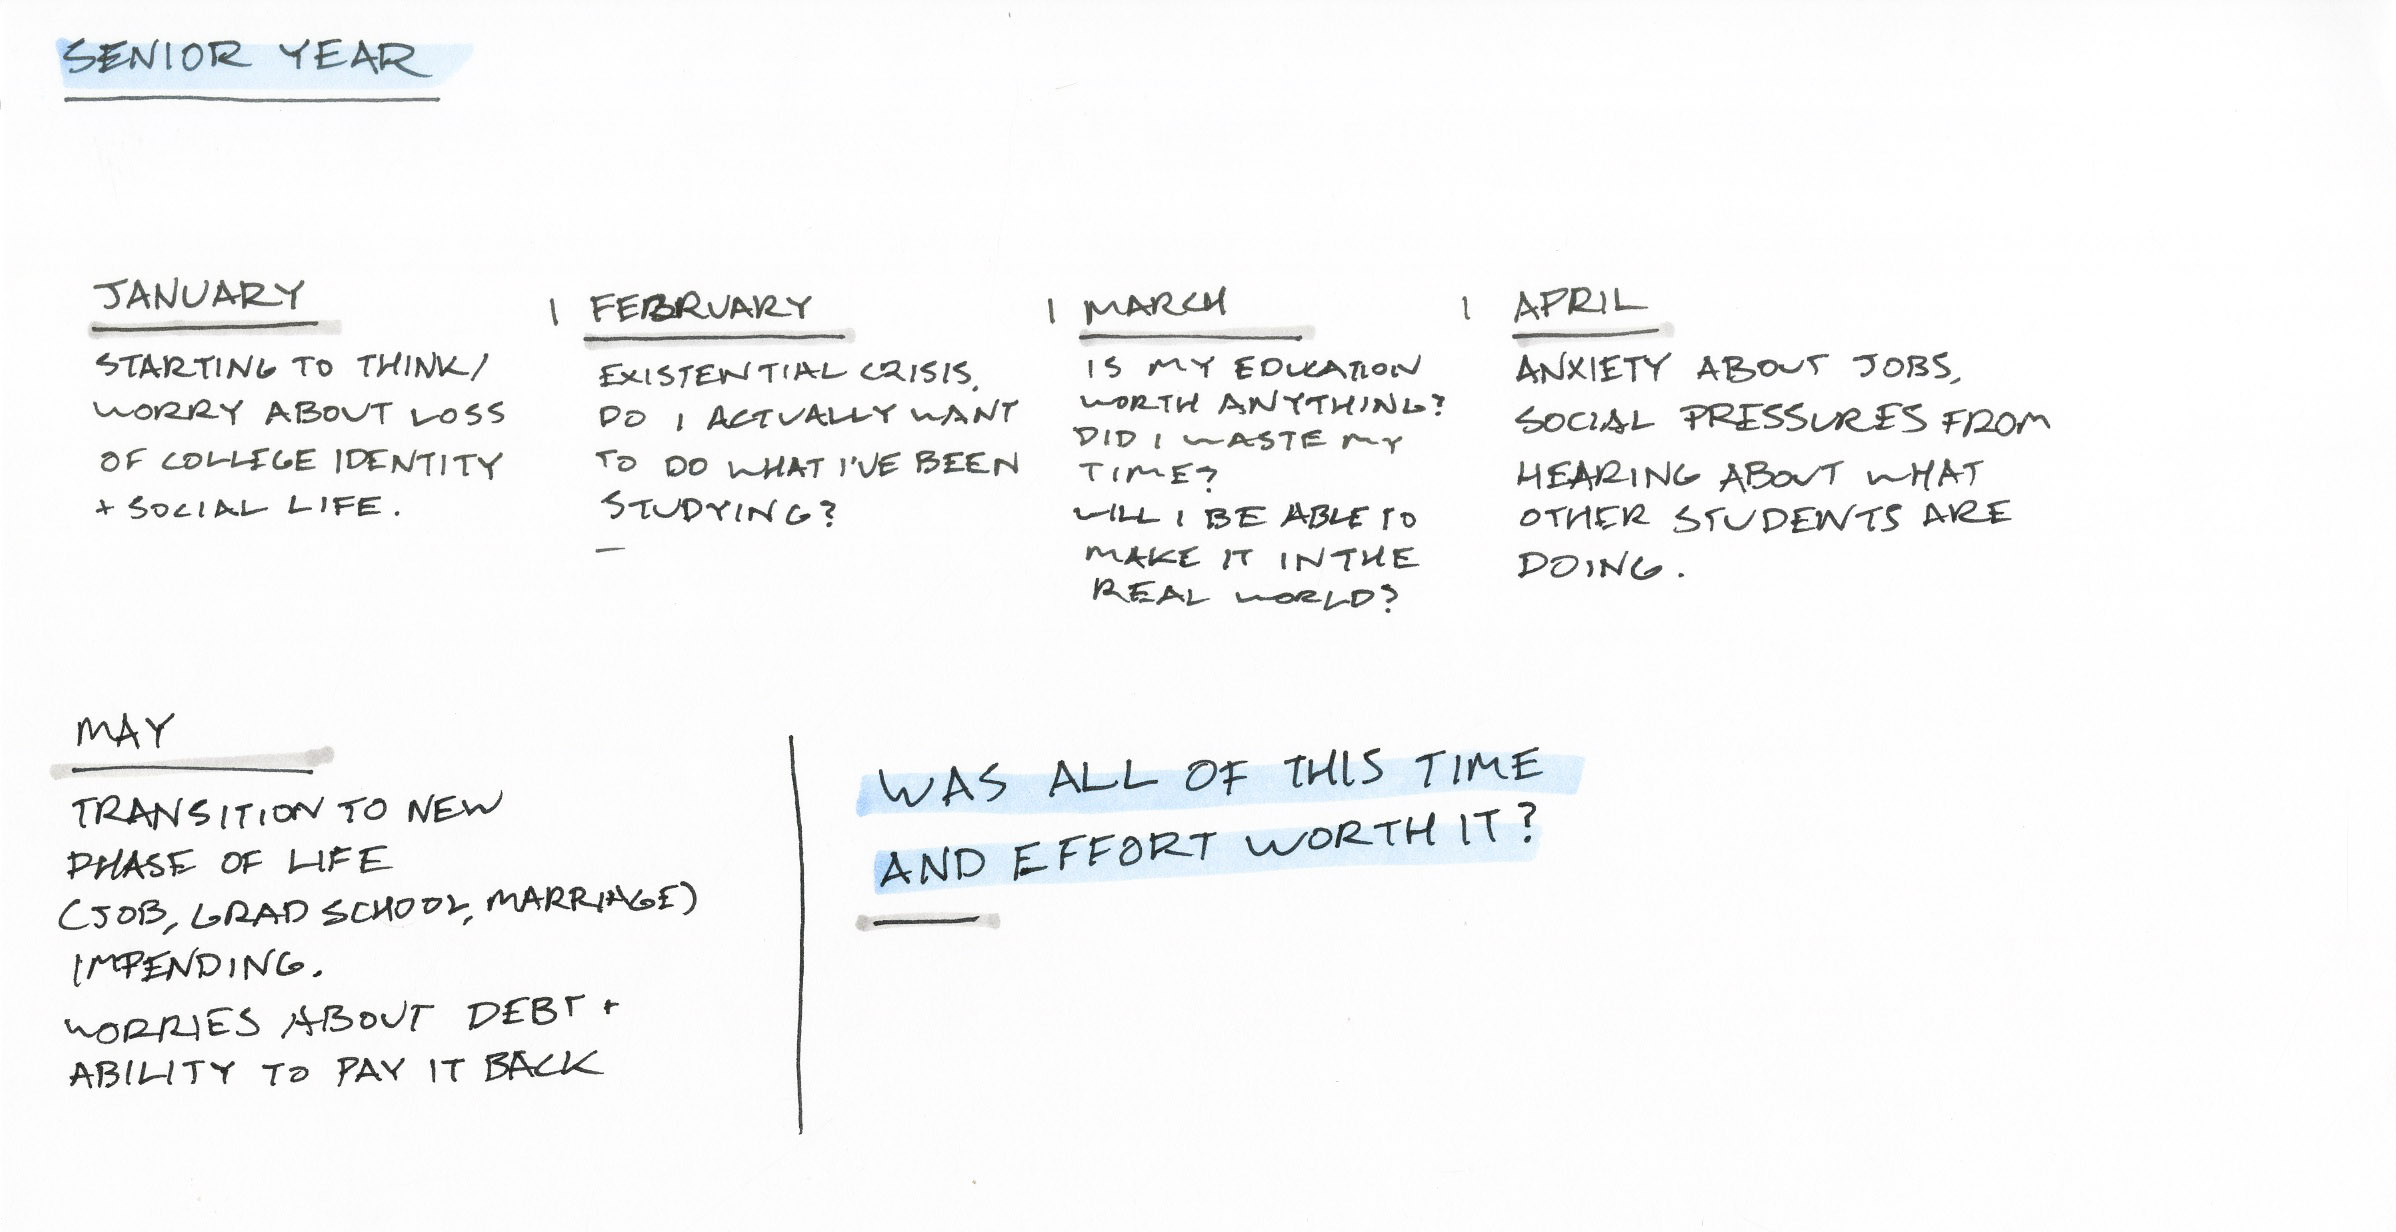 SENIOR YEAR
JANUARY
STARTING TO THINK/
WORRY ABOUT LOSS
OF COLLEGE IDENTITY
+ SOCIAL LIFE.
FEBRUARY
EXISTENTIAL CRISIS.
DO I ACTUALLY WANT
TO DO WHAT I'VE BEEN
STUDYING?
MARCH
IS MY EDUCATION
WORTH ANYTHING?
DID I WASTE MY
TIME?
WILL I BE ABLE TO
MAKE IT IN THE
REAL WORLD?
APRIL
ANXIETY ABOUT JOBS,
SOCIAL PRESSURES FROM
HEARING ABOUT WHAT
OTHER STUDENTS ARE
DOING.
MAY
TRANSITION TO NEW
PHASE OF LIFE
(JOB, GRAD SCHOOL, MARRIAGE)
IMPENDING.
WORRIES ABOUT DEBT +
ABILITY TO PAY IT BACK
WAS ALL OF THIS TIME
AND EFFORT WORTH IT?